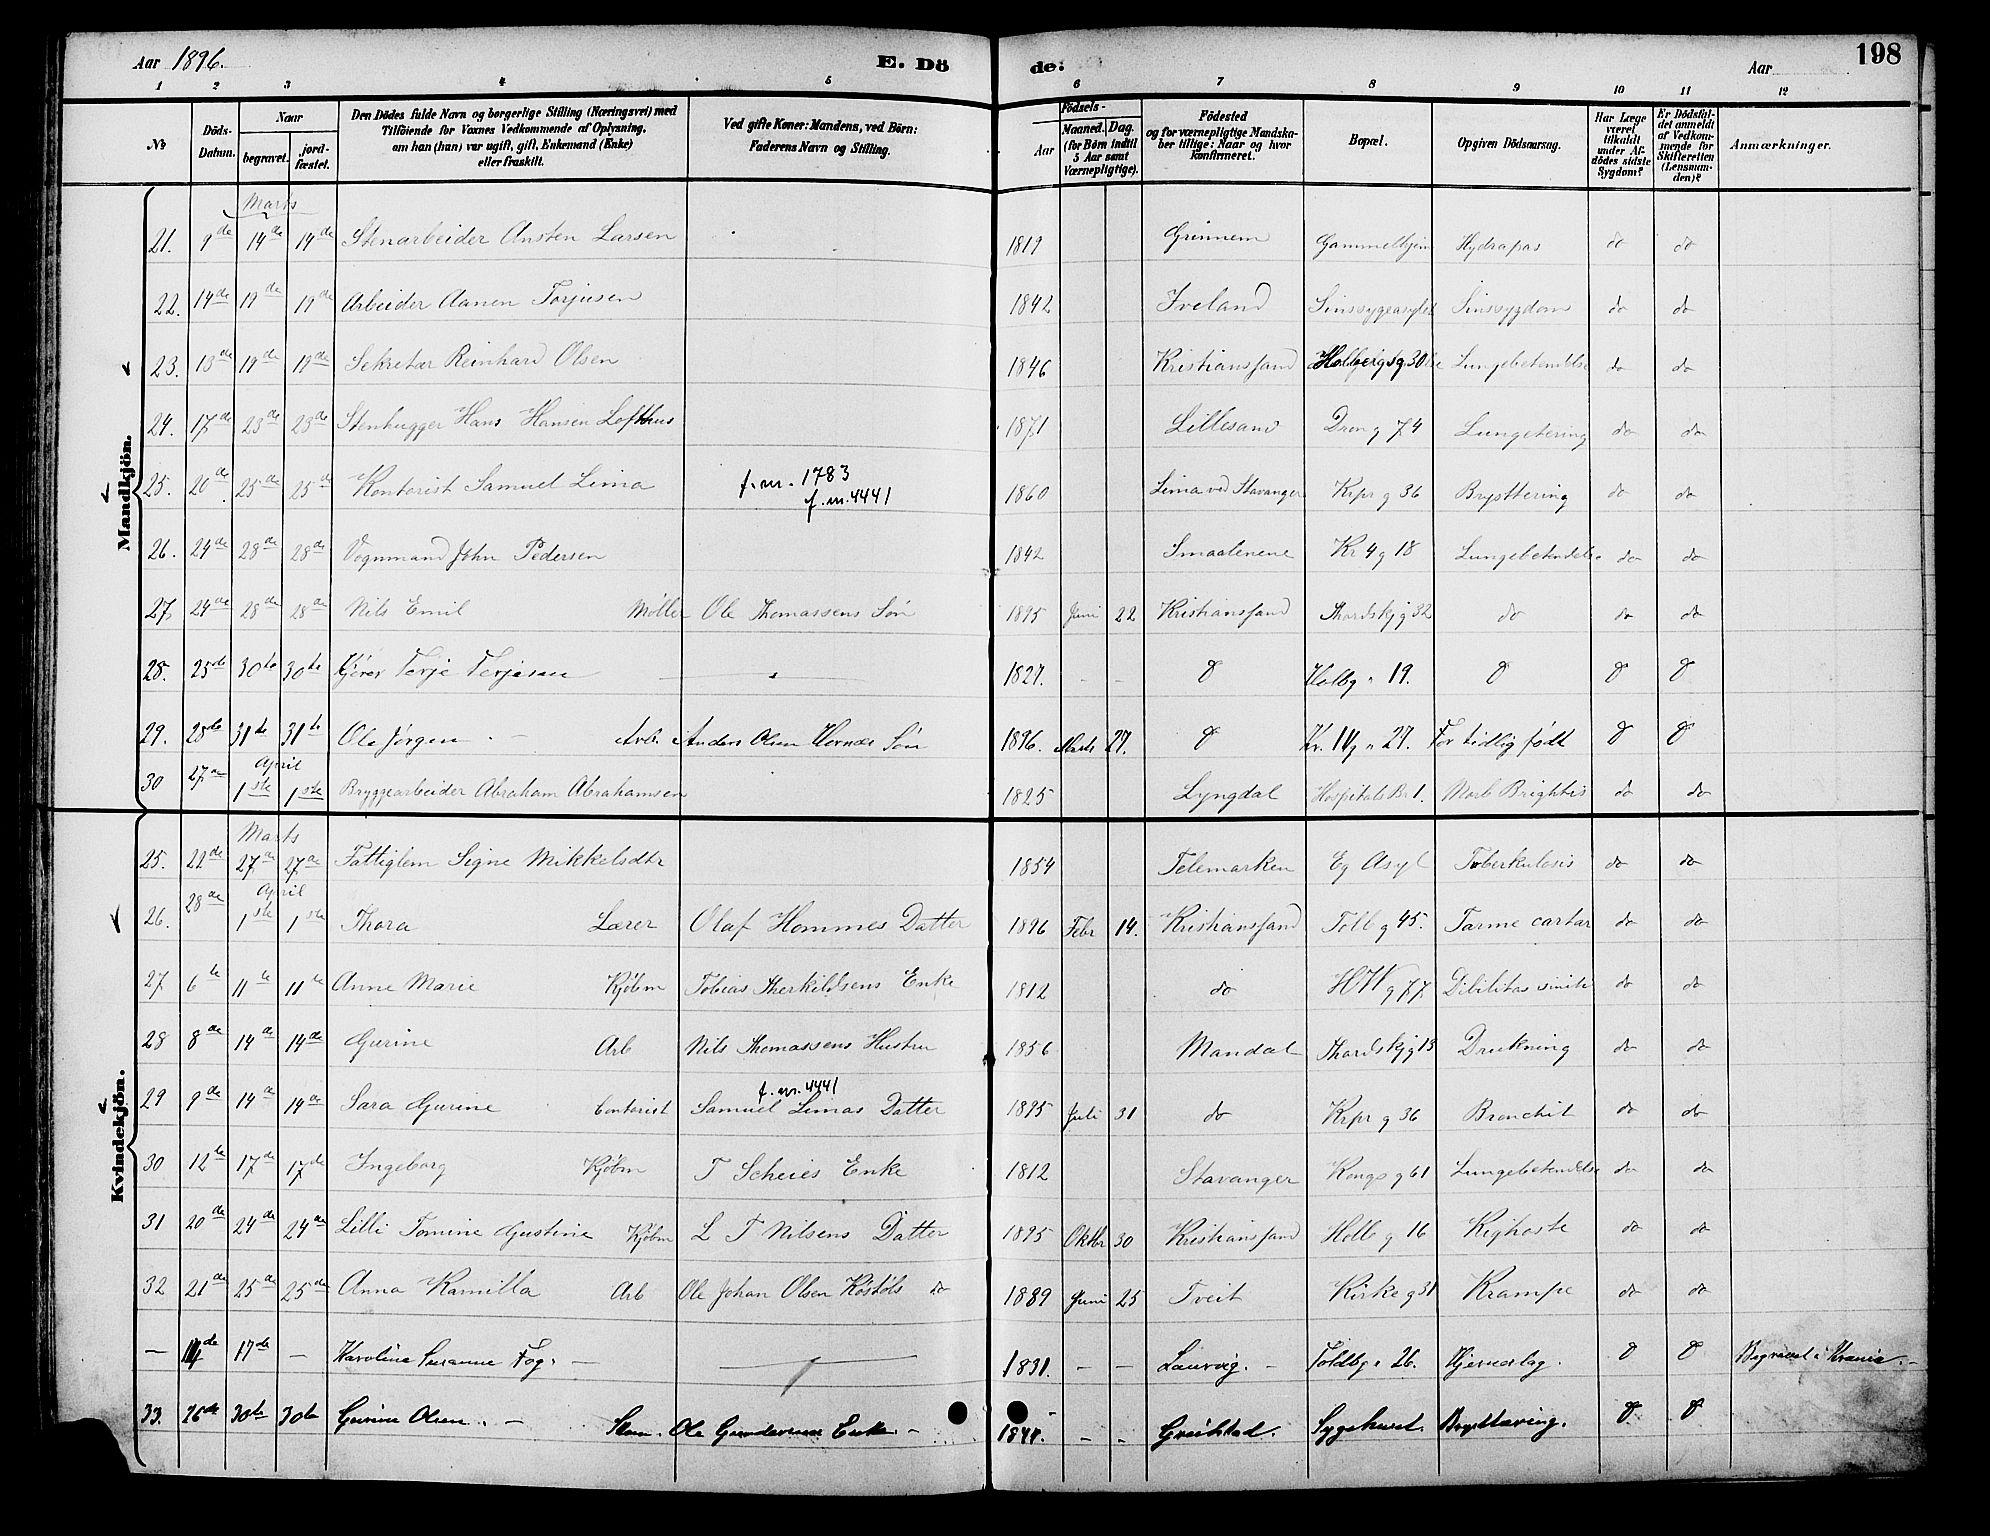 Aar 1896. E. Dö de: Aar 198
1 2 3 4 5 6 7 8 9 10 11 12
No Döds-Datum. Naar begravet. jord-fæstet. Den Dödes fulde Navn og borgerlige Stilling (Næringsvei) med Tilföiende for Voxnes Vedkommende af Oplysning, om han (hun) var ugift, gift, Enkemand (Enke) eller fraskilt. Ved gifte Koner: Mandens, ved Börn: Faderens Navn og Stilling. Födsels- Aar Maaned. Dag. (for Börn indtil 5 Aar samt Værnepligtige). Födested og for værnepligtige Mandskaber tillige: Naar og hvor konfirmeret. Bopæl. Opgiven Dödsaarsag. Har Læge været tilkaldt under Afdödes sidste Sygdom? Er Dödsfaldet anmeldt af Vedkommende for Skifteretten (Lensmanden)? Anmærkninger.
Mandkjön.
Marts
21. 9de 14de 14de Stenarbeider Ansten Larsen 1819 Grimnem Gammelhjem Hydrapas do do
22. 14de 19de 19de Arbeider Aanen Torjusen 1842 Iveland Sinssygeasylet Sinssygdom do do
23. 13de 19de 19de Sekretær Reinhard Olsen 1846 Kristianssand Holbergsg 30 Lungebetændelse do do
24. 17de 23de 23de Stenhugger Hans Hansen Lofthus 1871 Lillesand Dron g 74 Lungetæring do do
25. 20de 25de 25de Kontorist Samuel Lima f.nr. 1783 f.nr. 4441 1860 Lima ved Stavanger Krpr g 36 Brysttæring do do
26. 24de 28de 28de Vognmand John Pedersen 1842 Smaalenene Kr 4 g 18 Lungebetændelse do do
27 24de 28de 28de Nils Emil Møller Ole Thomassens Søn 1895 Juni 22 Kristianssand Thordskj g 32 do do do
28. 25de 30te 30te Terje Terjesen 1827. - - Holbg " 19.
29. 28de 31te 31te Ole Jørgen Arb. Anders Olsen Søn 1896. Marts 27. Kr. IVg " 27. For tidlig født
April
30 27de 1ste 1ste Bryggearbeider Abraham Abrahamsen 1825 Lyngdal Hospitals Br 1. Morb Brightis do do
Kvindekjön.
Marts
25. 22de 27de 27de Fattiglem Signe Mikkelsdtr 1854 Telemarken Eg Asyl Toberkulosis do do
April
26. 28de 1ste 1ste Thora Lærer Olaf Hommes Datter 1896 Febr 14. Kristianssand Tolb g 45. Tarme cartar do do
27 6te 11te 11te Anne Marie Kjøbm Tobias Therkildsens Enke 1812 do HW g 77 Dibilitas sinile do do
28 8de 14de 14de Gurine Arb Nils Thomassens Hustru 1856 Mandal Thordskj g 13 Drukning do do
29 9de 14de 14de Sara Gurine Contorist Samuel Limas Datter f.nr. 4441 1895 Juli 31 do Krpr g 36 Bronchit do do
30 12te 17de 17de Ingeborg Kjøbm T Scheies Enke 1812 Stavanger Kongs g 61 Lungebetændelse do do
31 20de 24de 24de Lilli Tomine Gustine Kjøbm L T Nilsens Datter 1895 Oktbr 30 Kristianssand Holb g 16 Kighoste do do
32 21de 25de 25de Anna Kamilla Arb Ole Johan Olsen Køstøls do 1889 Juni 25 Tveit Kirke g 31 Krampe do do
- 14de 17de - Karoline Susanne Fog. 1831. - - Laurvig. Toldbg. 26. Hjerneslag. Begravet i Krania.
33. 26de 30te 30te Gurine Olsen. Ole Gundersens Enke - - - Grimstad. Sygehuset. Brysttæring.